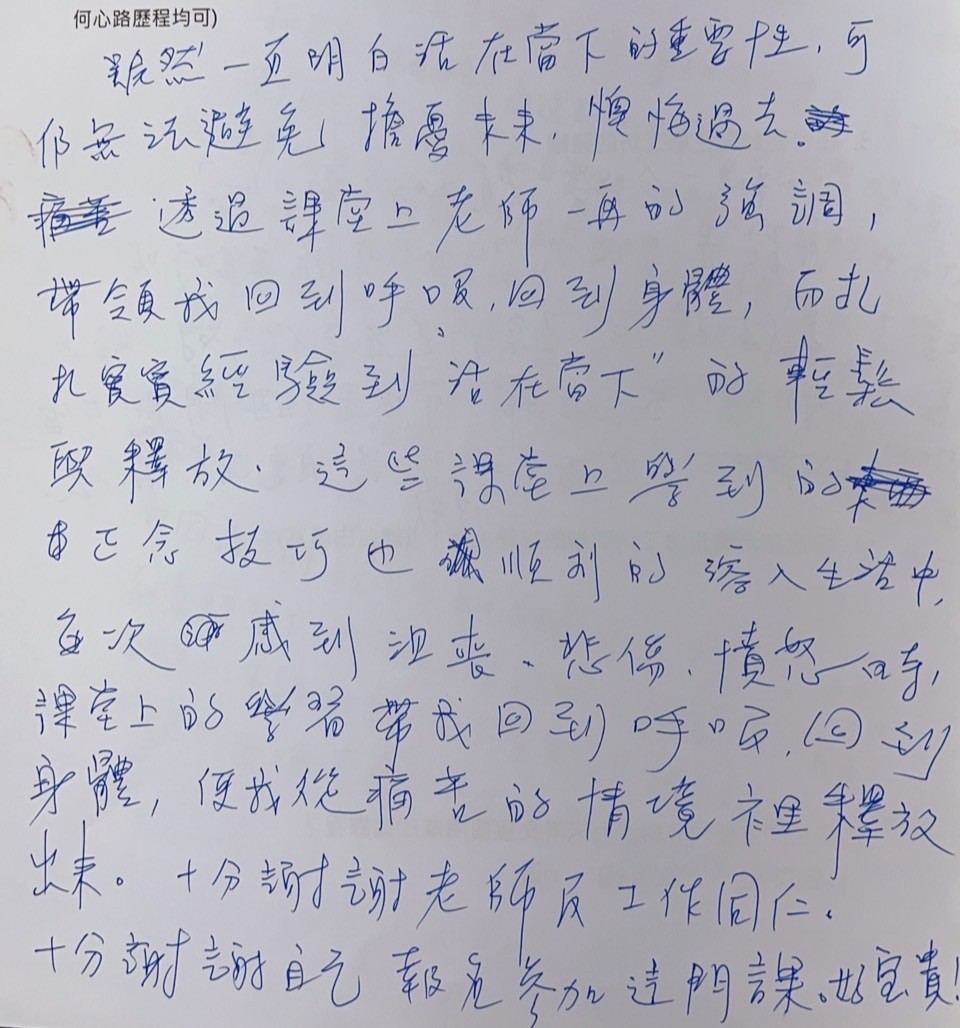 何心路歷程均可)
雖然一直明白活在當下的重要性,可
仍無法避免擔憂未來,懊悔過去。
透過課堂上老師一再的強調,
帶領我回到呼吸,回到身體,而扎
扎實實經驗到"活在當下"的輕鬆
與釋放。這些課堂上學到的
正念技巧也順利的溶入生活中,
每次感到沮喪、悲傷、憤怒時,
課堂上的學習帶我回到呼吸,回到
身體,使我從痛苦的情境裡釋放
出來。十分謝謝老師及工作同仁。
十分謝謝自己報名參加這門課。好寶貴!